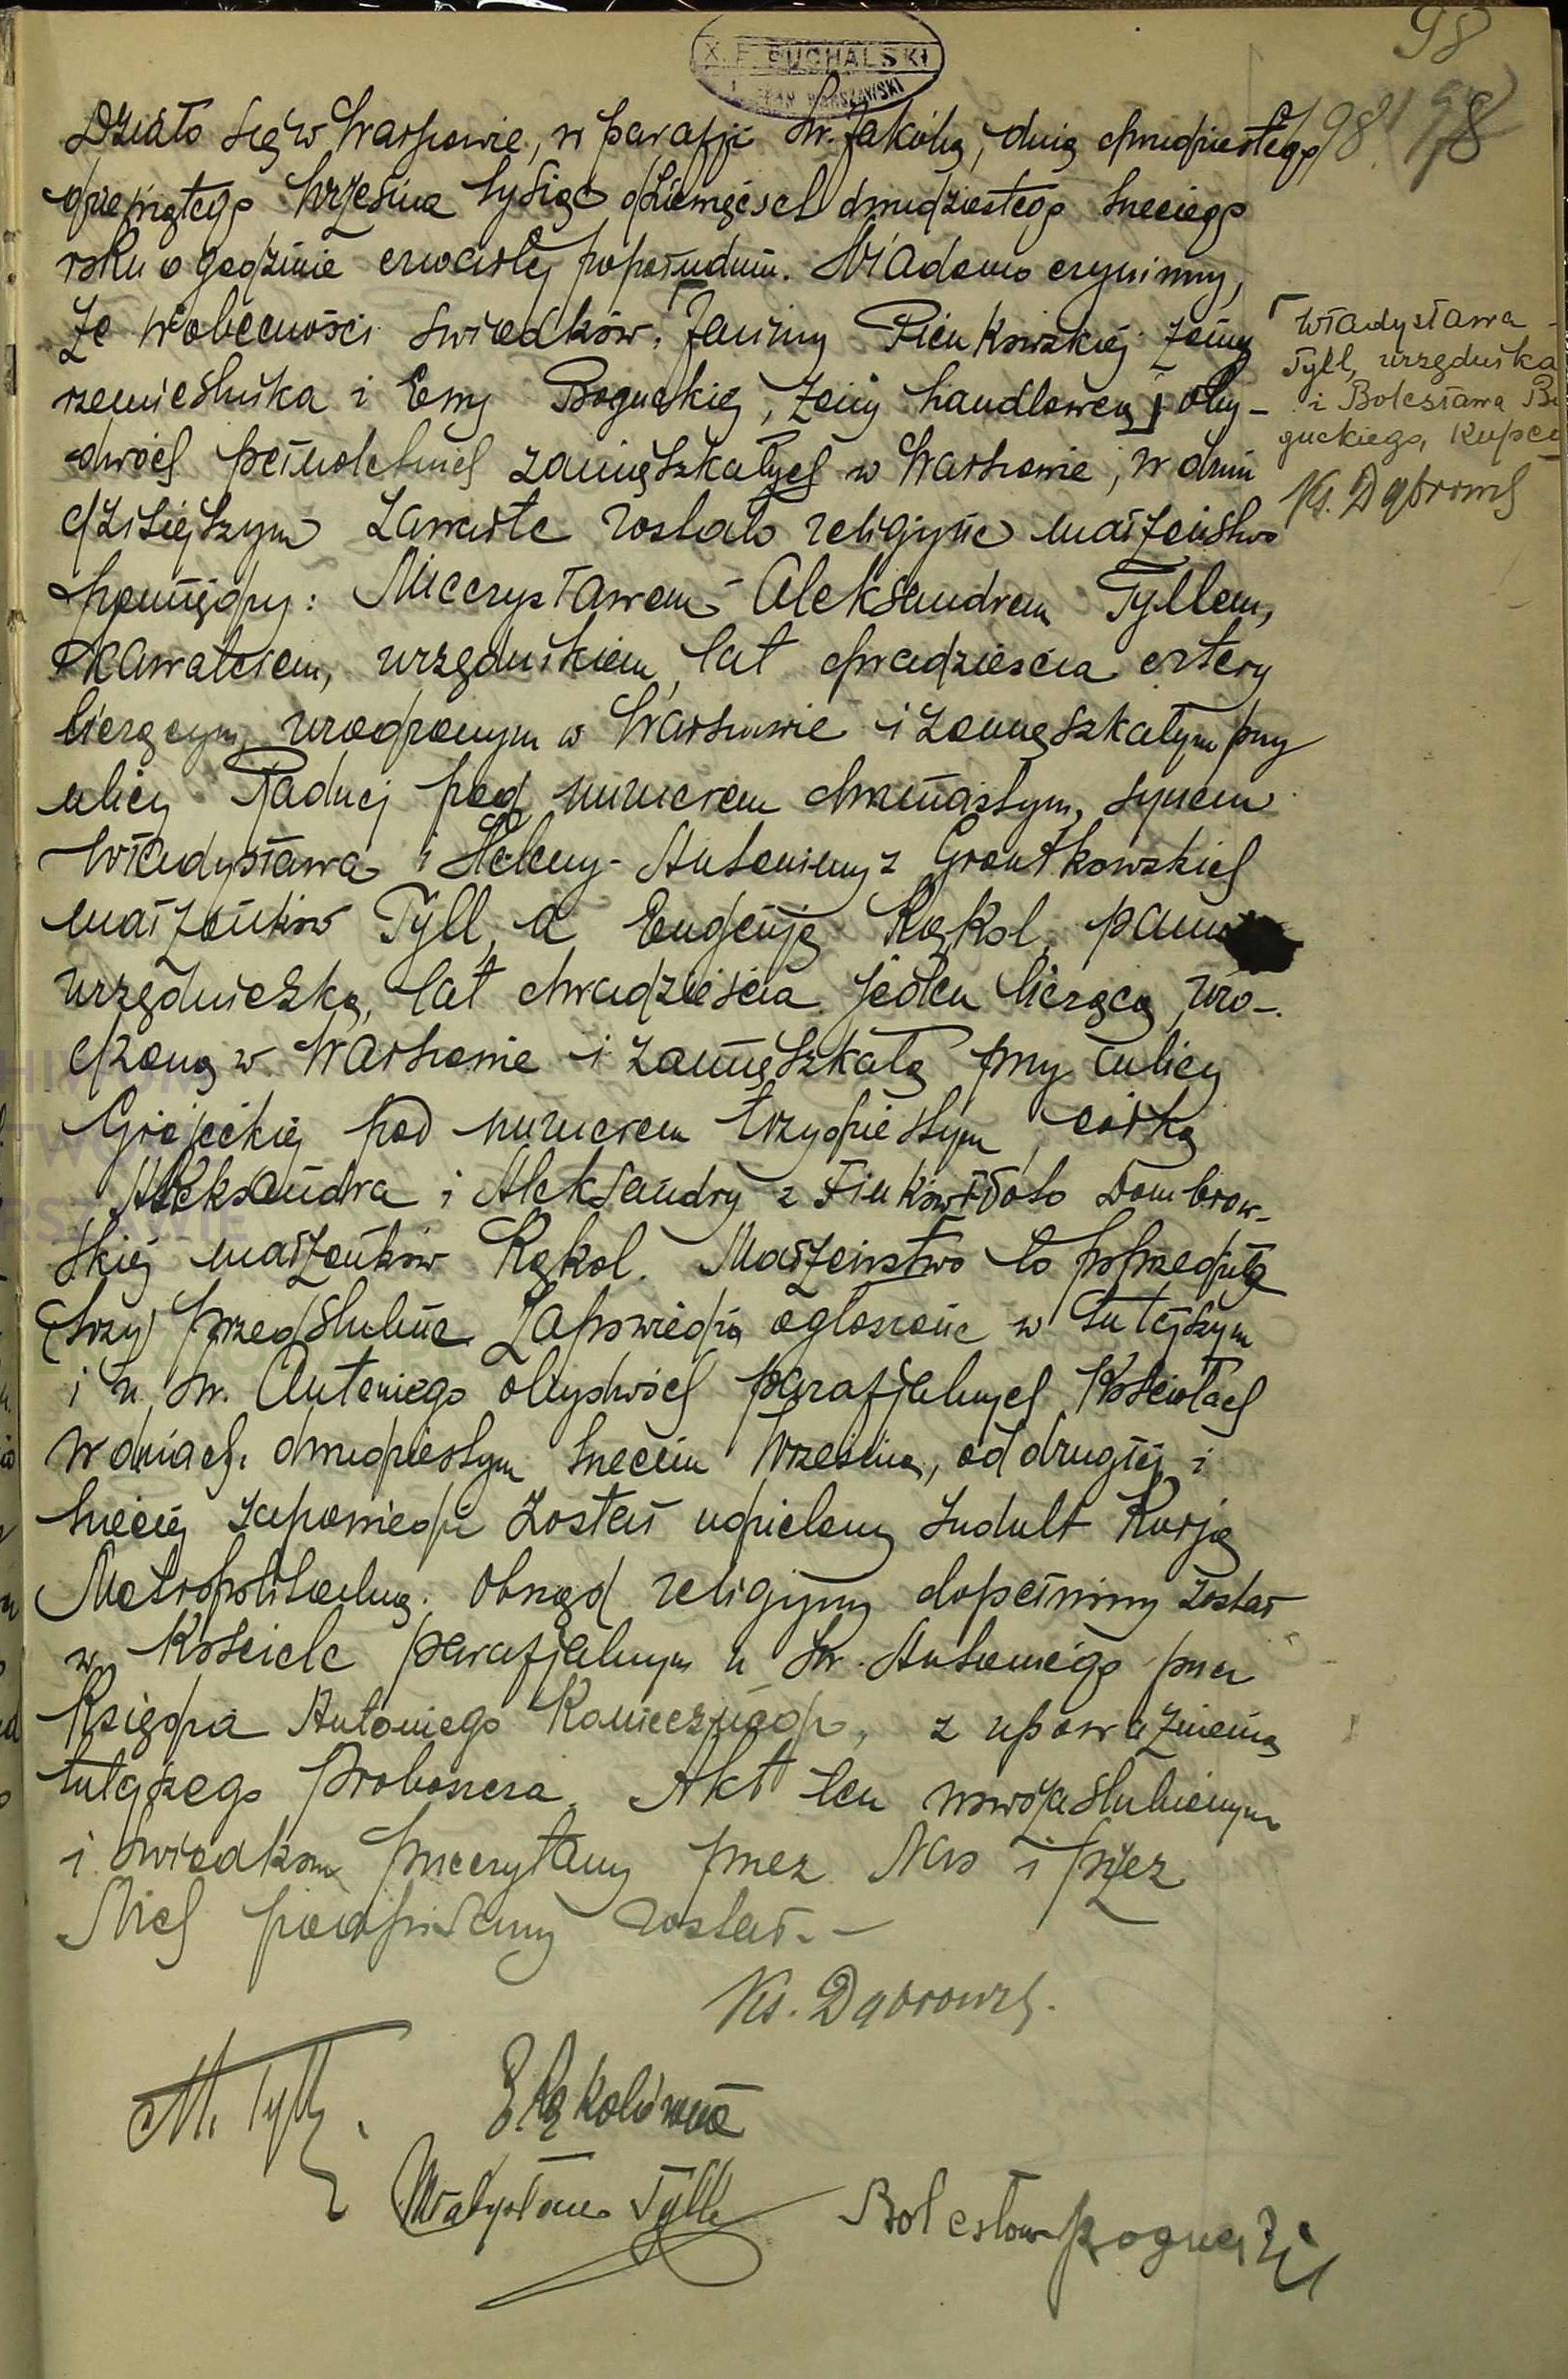 98
X. F. PUCHALSKI
WARSZAWSKI
Działo się w Warszawie, w parafji św. Jakóba, dnia dwudziestego 98 98
dziewiątego Września tysiąc dziewięćset dwudziestego trzeciego
roku o godzinie czwartej popołudniu. Wiadomo czynimy,
że w obecności świadków: Janiny Pieńkowskiej żony
rzemieślnika i Ewy Boguckiej, żony handlowca, oby-
dwóch pełnoletnich zamieszkałych w Warszawie, w dniu
dzisiejszym zawarte zostało religijne małżeństwo
pomiędzy: Mieczysławem-Aleksandrem Tyllem,
Kawalerem, urzędnikiem, lat dwadzieścia cztery
liczącym, urodzonym w Warszawie i zamieszkałym przy
ulicy Radnej pod numerem dwunastym, synem
Władysława i Heleny-Antoniny z Grontkowskich
małżonków Tyll, a Eugenją Kąkol, panną
urzędniczką, lat dwadzieścia jeden liczącą, uro-
dzoną w Warszawie i zamieszkałą przy ulicy
Grójeckiej pod numerem trzydziestym, córką
Aleksandra i Aleksandry z Finków voto Dombrow-
skiej małżonków Kąkol. Małżeństwo to poprzedziła
(trzy) przedślubne zapowiedzi ogłoszone w tutejszym
i u św. Antoniego obydwóch parafjalnych Kościołach
w dniach: dwudziestym trzecim Września, od drugiej i
trzeciej zapowiedzi został udzielony Indult Kurją
Metropolitalną. Obrzęd religijny dopełniony został
w Kościele parafjalnym u św. Antoniego przez
Księdza Antoniego z upoważnienia
tutejszego Proboszcza. Akt ten nowozaślubionym
i świadkom przeczytany przez Nas i przez
Nich podpisany został.-
Ks. Dąbrowski.
Władysława
Tyll, urzędnika
i Bolesława Bo
guckiego, Kupca
Ks. Dąbrowski
M. Tyll.
E Kąkolówna
Władysław Tyll
Bolesław Bogucki